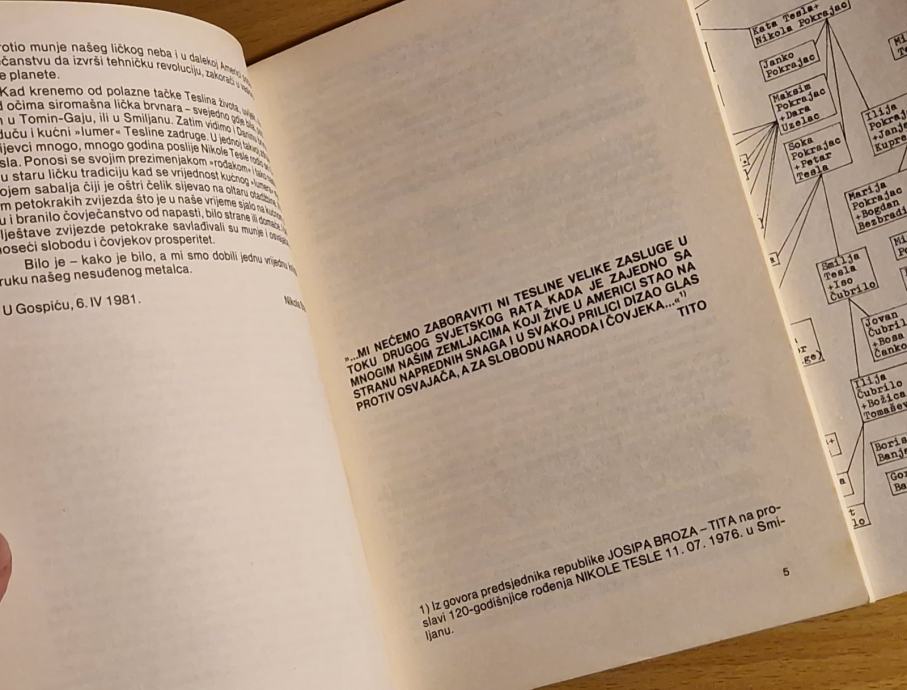 rotio munje našeg ličkog neba i u dalekoj Americi
čanstvu da izvrši tehničku revoluciju, zakorači u
e planete.
Kad krenemo od polazne tačke Teslina života,
d očima siromašna lička brvnara – svejedno gdje bila,
u Tomin-Gaju, ili u Smiljanu. Zatim vidimo i
duću i kućni »lumer« Tesline zadruge. U jednoj takvoj
ijevci mnogo, mnogo godina poslije Nikole Tesle
sla. Ponosi se svojim prezimenjakom »rođakom« i
u staru ličku tradiciju kad se vrijednost kućnog
ojem sabalja čiji je oštri čelik sijevao na oltaru
m petokrakih zvijezda što je u naše vrijeme sjalo na
u i branilo čovječanstvo od napasti, bilo strane ili
lještave zvijezde petokrake savlađivali su munje i
noseći slobodu i čovjekov prosperitet.
Bilo je – kako je bilo, a mi smo dobili jednu vrijednu
ruku našeg nesuđenog metalca.
U Gospiću, 6. IV 1981.
»...MI NEĆEMO ZABORAVITI NI TESLINE VELIKE ZASLUGE U
TOKU DRUGOG SVJETSKOG RATA KADA JE ZAJEDNO SA
MNOGIM NAŠIM ZEMLJACIMA KOJI ŽIVE U AMERICI STAO NA
STRANU NAPREDNIH SNAGA I U SVAKOJ PRILICI DIZAO GLAS
PROTIV OSVAJAČA, A ZA SLOBODU NARODA I ČOVJEKA...«¹⁾
TITO
1) Iz govora predsjednika republike JOSIPA BROZA – TITA na pro-
slavi 120-godišnjice rođenja NIKOLE TESLE 11. 07. 1976. u Smi-
ljanu.
5
Kata Tesla+
Nikola Pokrajac
Janko
Pokrajac
Maksim
Pokrajac
+Dara
Uzelac
Soka
Pokrajac
+Petar
Tesla
Ilija
Pokraj
+Janj
Kupre
Marija
Pokrajac
+Bogdan
Bezbradi
Smilja
Tesla
+Iso
Čubrilo
Jovan
Čubril
+Bosa
Čanko
Ilija
Čubrilo
+Božica
Tomašev
Boris
Banj